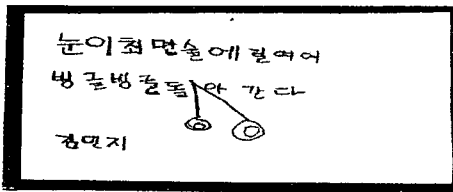 눈이최면술에걸여어
빙글빙글돌아간다
김민지